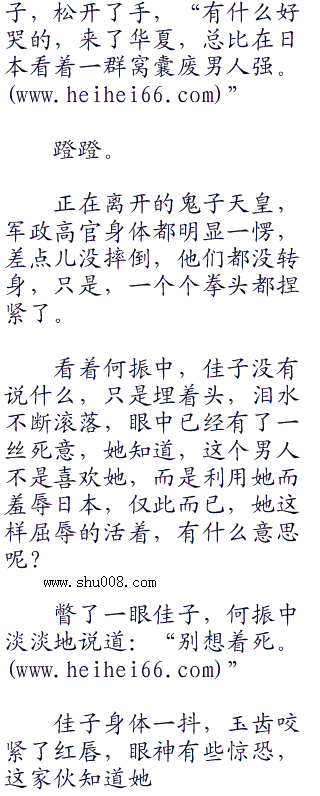 子，松开了手，“有什么好
哭的，来了华夏，总比在日
本看着一群窝囊废男人强。
(www.heihei66.com)”
蹬蹬。
正在离开的鬼子天皇，
军政高官身体都明显一愣，
差点儿没摔倒，他们都没转
身，只是，一个个拳头都捏
紧了。
看着何振中，佳子没有
说什么，只是埋着头，泪水
不断滚落，眼中已经有了一
丝死意，她知道，这个男人
不是喜欢她，而是利用她而
羞辱日本，仅此而已，她这
样屈辱的活着，有什么意思
呢？
www.shu008.com
瞥了一眼佳子，何振中
淡淡地说道：“别想着死。
(www.heihei66.com)”
佳子身体一抖，玉齿咬
紧了红唇，眼神有些惊恐，
这家伙知道她